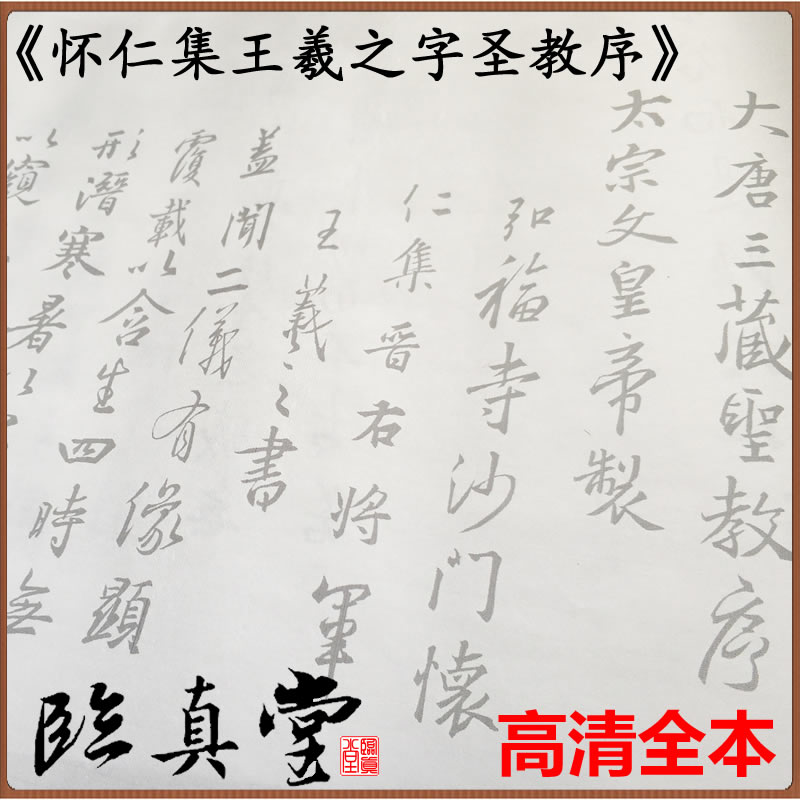 《怀仁集王羲之字圣教序》
大唐三藏聖教序
太宗文皇帝製
弘福寺沙門懷
仁集晉右將軍
王羲之書
蓋聞二儀有像顯
覆載以含生四時無
形潛寒暑以
以窺
臨真堂
臨真堂
高清全本